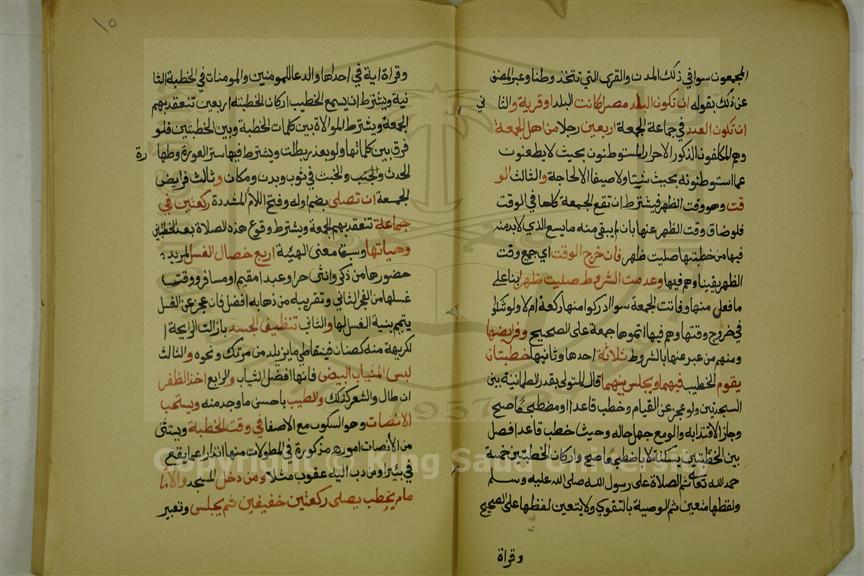 المجمعون سوا في ذلك المدن والقرى التي تتخذ وطنا وعبر المصنف
عن ذلك بقوله ان تكون البلد مصرا كانت البلد او قرية والثاني
ان يكون العدد في جماعة الجمعة اربعين رجلا من اهل الجمعة
وهم المكلفون الذكور الاحرار المستوطنون بحيث لا يظعنون
عما استوطنوه شتا ولا صيفا الا لحاجة والثالث الو
قت وهو وقت الظهر فيشترط ان تقع الجمعة كلها في الوقت
فلو ضاق وقت الظهر عنها بان لم يبق منه ما يسع الذي لا بد منه
فيها من خطبتيها صليت ظهرا فان خرج الوقت اي جميع وقت
الظهر يقينا وهم فيها وعدمت الشروط صليت ظهرا بنا على
ما فعل منها وفاتت الجمعة سوا ادركوا منها ركعة ام لا ولو شكوا
في خروج وقتها وهم فيها اتموها جمعة على الصحيح وفرايضها
ومنهم من عبر عنها بالشروط ثلاثة احدها وثانيها خطبتان
يقوم الخطيب فيهما ويجلس بينهما قال المتولي بقدر الطمانينة بين
السجدتين ولو عجز عن القيام وخطب قاعدا او مضطجعا صح
وجاز الاقتدا به ولو مع جهل حاله وحيث خطب قاعدا فصل
بين الخطبتين بسكتة لا باضطجاع واركان الخطبتين خمسة
حمد الله تعالى ثم الصلاة على رسول الله صلى الله عليه وسلم
ولفظها متعين ثم الوصية بالتقوى ولا يتعين لفظها على الصحيح
وقراة
١٠
وقراة اية في احداها والدعا للمومنين والمومنات في الخطبة الثا
نية ويشترط ان يسمع الخطيب اركان الخطبة اربعين تنعقد بهم
الجمعة ويشترط الموالاة بين كلمات الخطبة وبين الخطبتين فلو
فرق بين كلماتها ولو بعذر بطلت ويشترط فيها ستر العورة وطهارة
الحدث والخبث في ثوب وبدن ومكان وثالث فرايض
الجمعة ان تصلى بضم اوله وفتح اللام المشددة ركعتين في
جماعة تنعقد بهم الجمعة ويشترط وقوع هذه الصلاة بعد الخطبتين
وهيئاتها وسبق معنى الهيئة اربع خصال الغسل لمريد
حضورها من ذكر وانثى حر وعبد مقيم او مسافر ووقت
غسلها من الفجر الثاني وتقريبه من ذهابه افضل فان عجز عن الغسل
تيمم بنية الغسل لها والثاني تنظيف الجسد بازالة الرايحة ا
لكريهة منه كصنان فيتعاطى ما يزيله من مرتك ونحوه والثالث
لبس الثياب البيض فانها افضل الثياب والرابع اخذ الظفر
ان طال والشعر كذلك والطيب باحسن ما وجد منه ويستحب
الانصات وهو السكوت مع الاصغا في وقت الخطبة ويستثنى
من الانصات امور مذكورة في المطولات منها انذار اعمى يقع
في بئر او من دب اليه عقرب مثلا ومن دخل المسجد والاما
م يخطب يصلي ركعتين خفيفتين ثم يجلس وتعبير
Copyright © King Saud University
1957